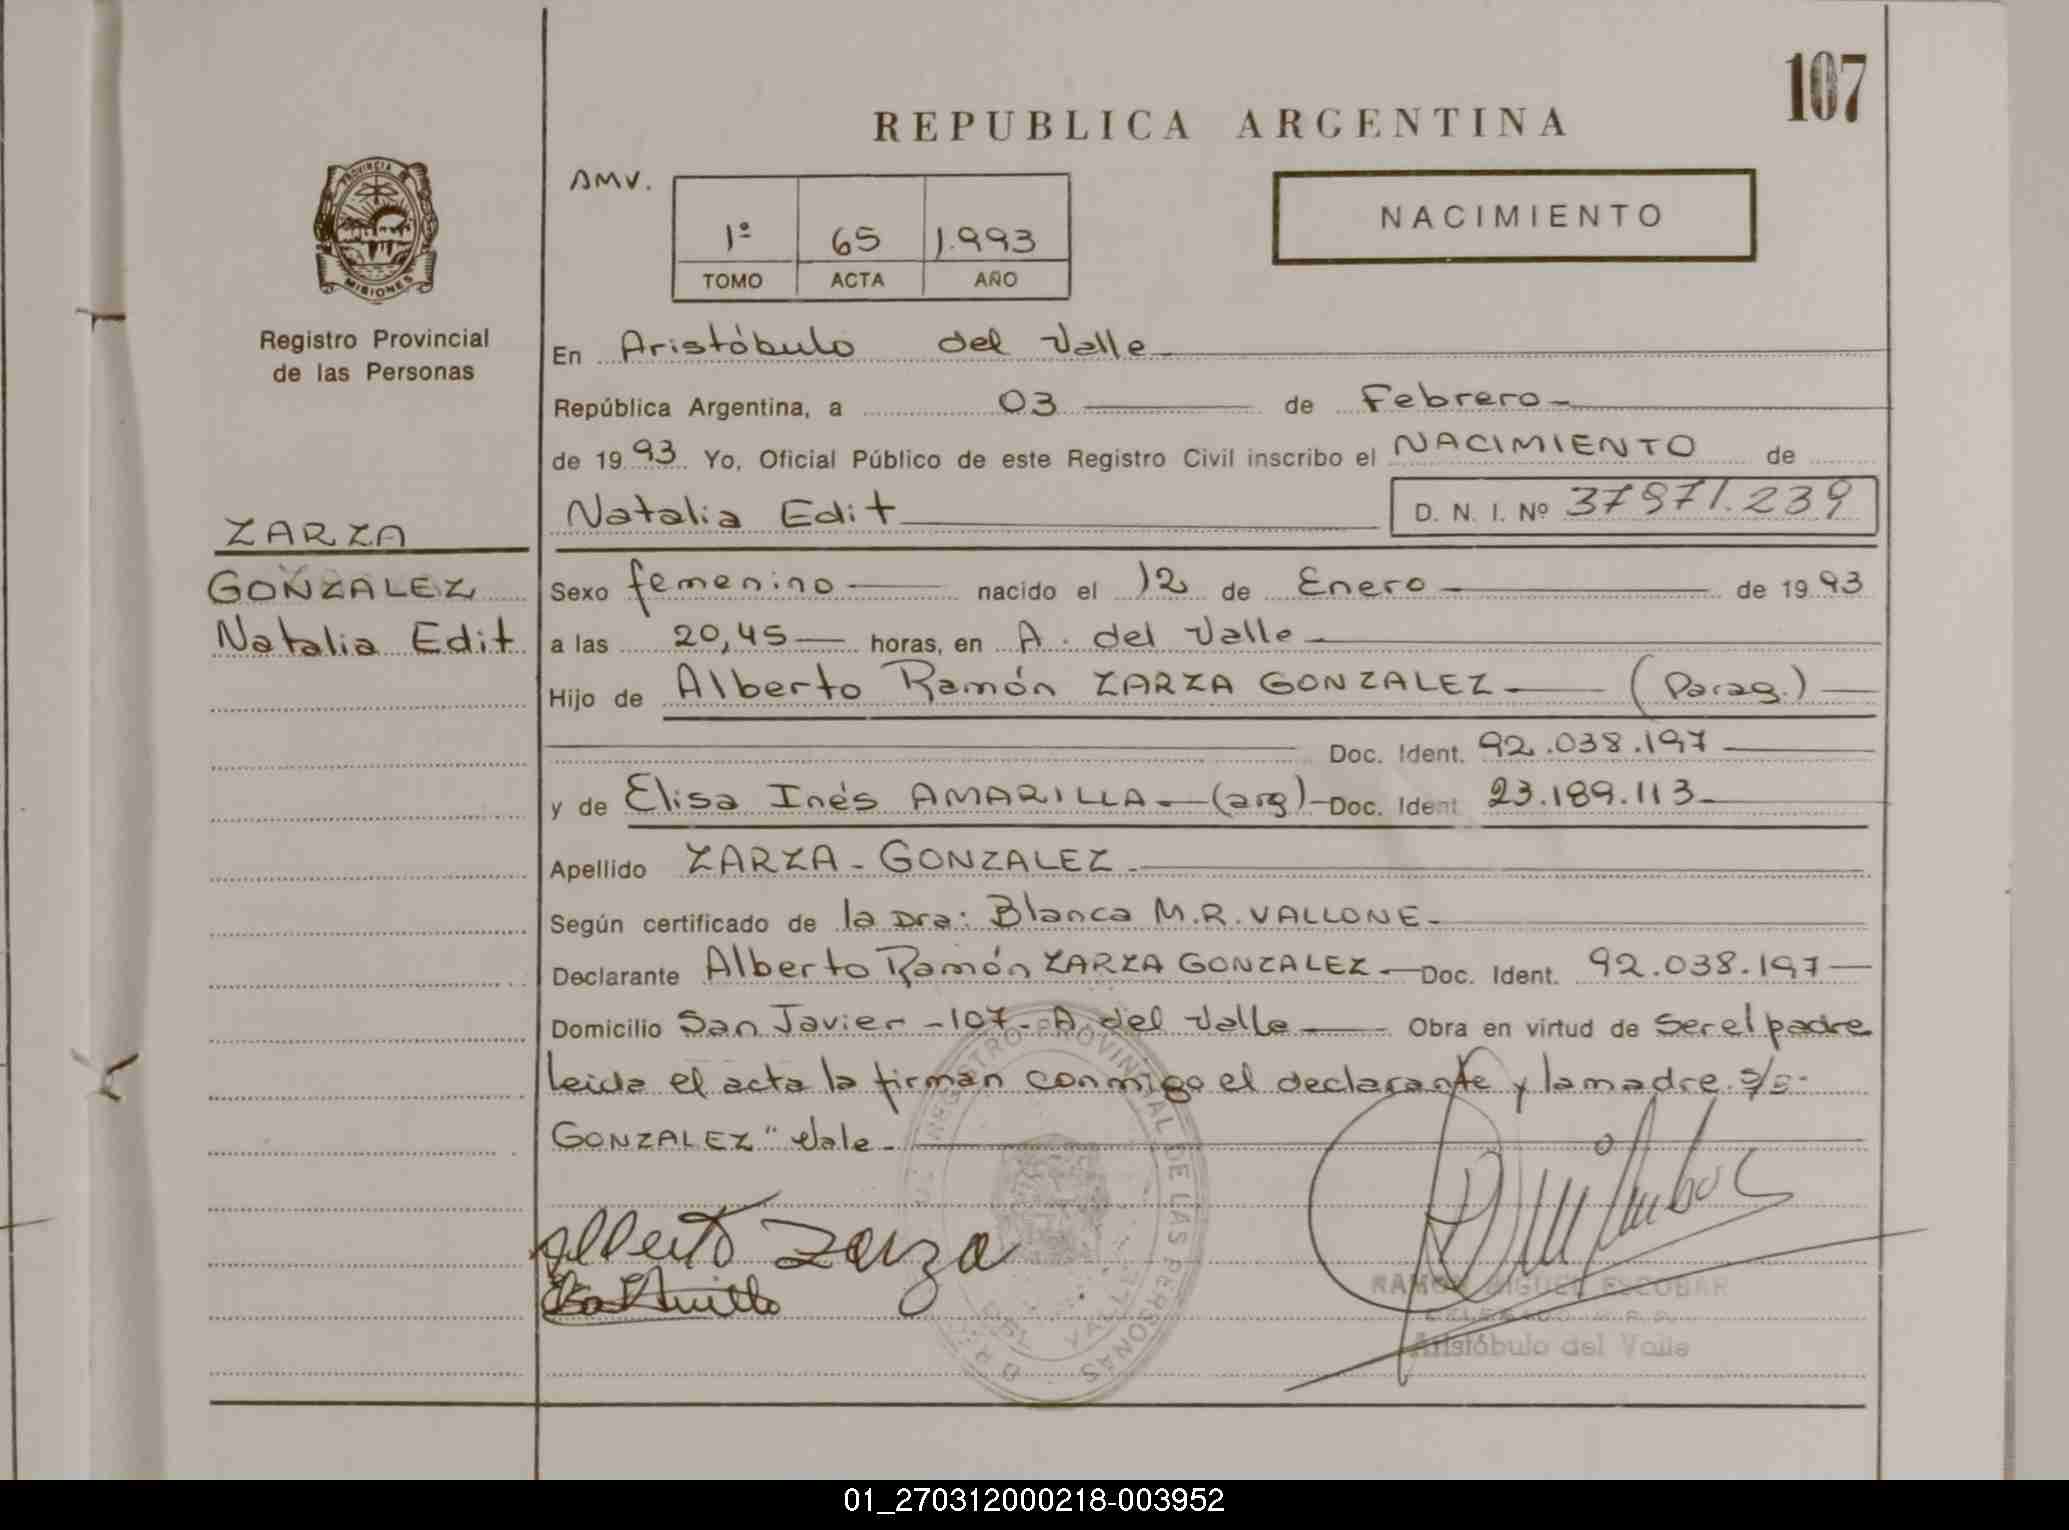 107
REPUBLICA ARGENTINA
PROVINCIA D
MISIONES
Registro Provincial
de las Personas
AMV.
1º 65 1.993
TOMO ACTA AÑO
NACIMIENTO
En Aristóbulo del Valle
República Argentina, a 03 de Febrero
de 1993 Yo, Oficial Público de este Registro Civil inscribo el NACIMIENTO de
Natalia Edit D. N. I. Nº 37971.239
ZARZA
GONZALEZ
Natalia Edit
Sexo femenino nacido el 12 de Enero de 1993
a las 20,45 horas, en A. del Valle
Hijo de Alberto Ramón ZARZA GONZALEZ (Parag.)
Doc. Ident. 92.038.197
y de Elisa Inés AMARILLA (arg) Doc. Ident 23.189.113
Apellido ZARZA - GONZALEZ
Según certificado de la Dra: Blanca M.R. VALLONE
Declarante Alberto Ramón ZARZA GONZALEZ Doc. Ident. 92.038.197
Domicilio San Javier - 107 - A. del Valle Obra en virtud de ser el padre
leida el acta la firman conmigo el declarante y la madre. s/
GONZALEZ" Vale
REGISTRO PROVINCIAL DE LAS PERSONAS
DEL VALLE
Alberto Zarza
RAMON MIGUEL ESCOBAR
Aristóbulo del Valle
01_270312000218-003952